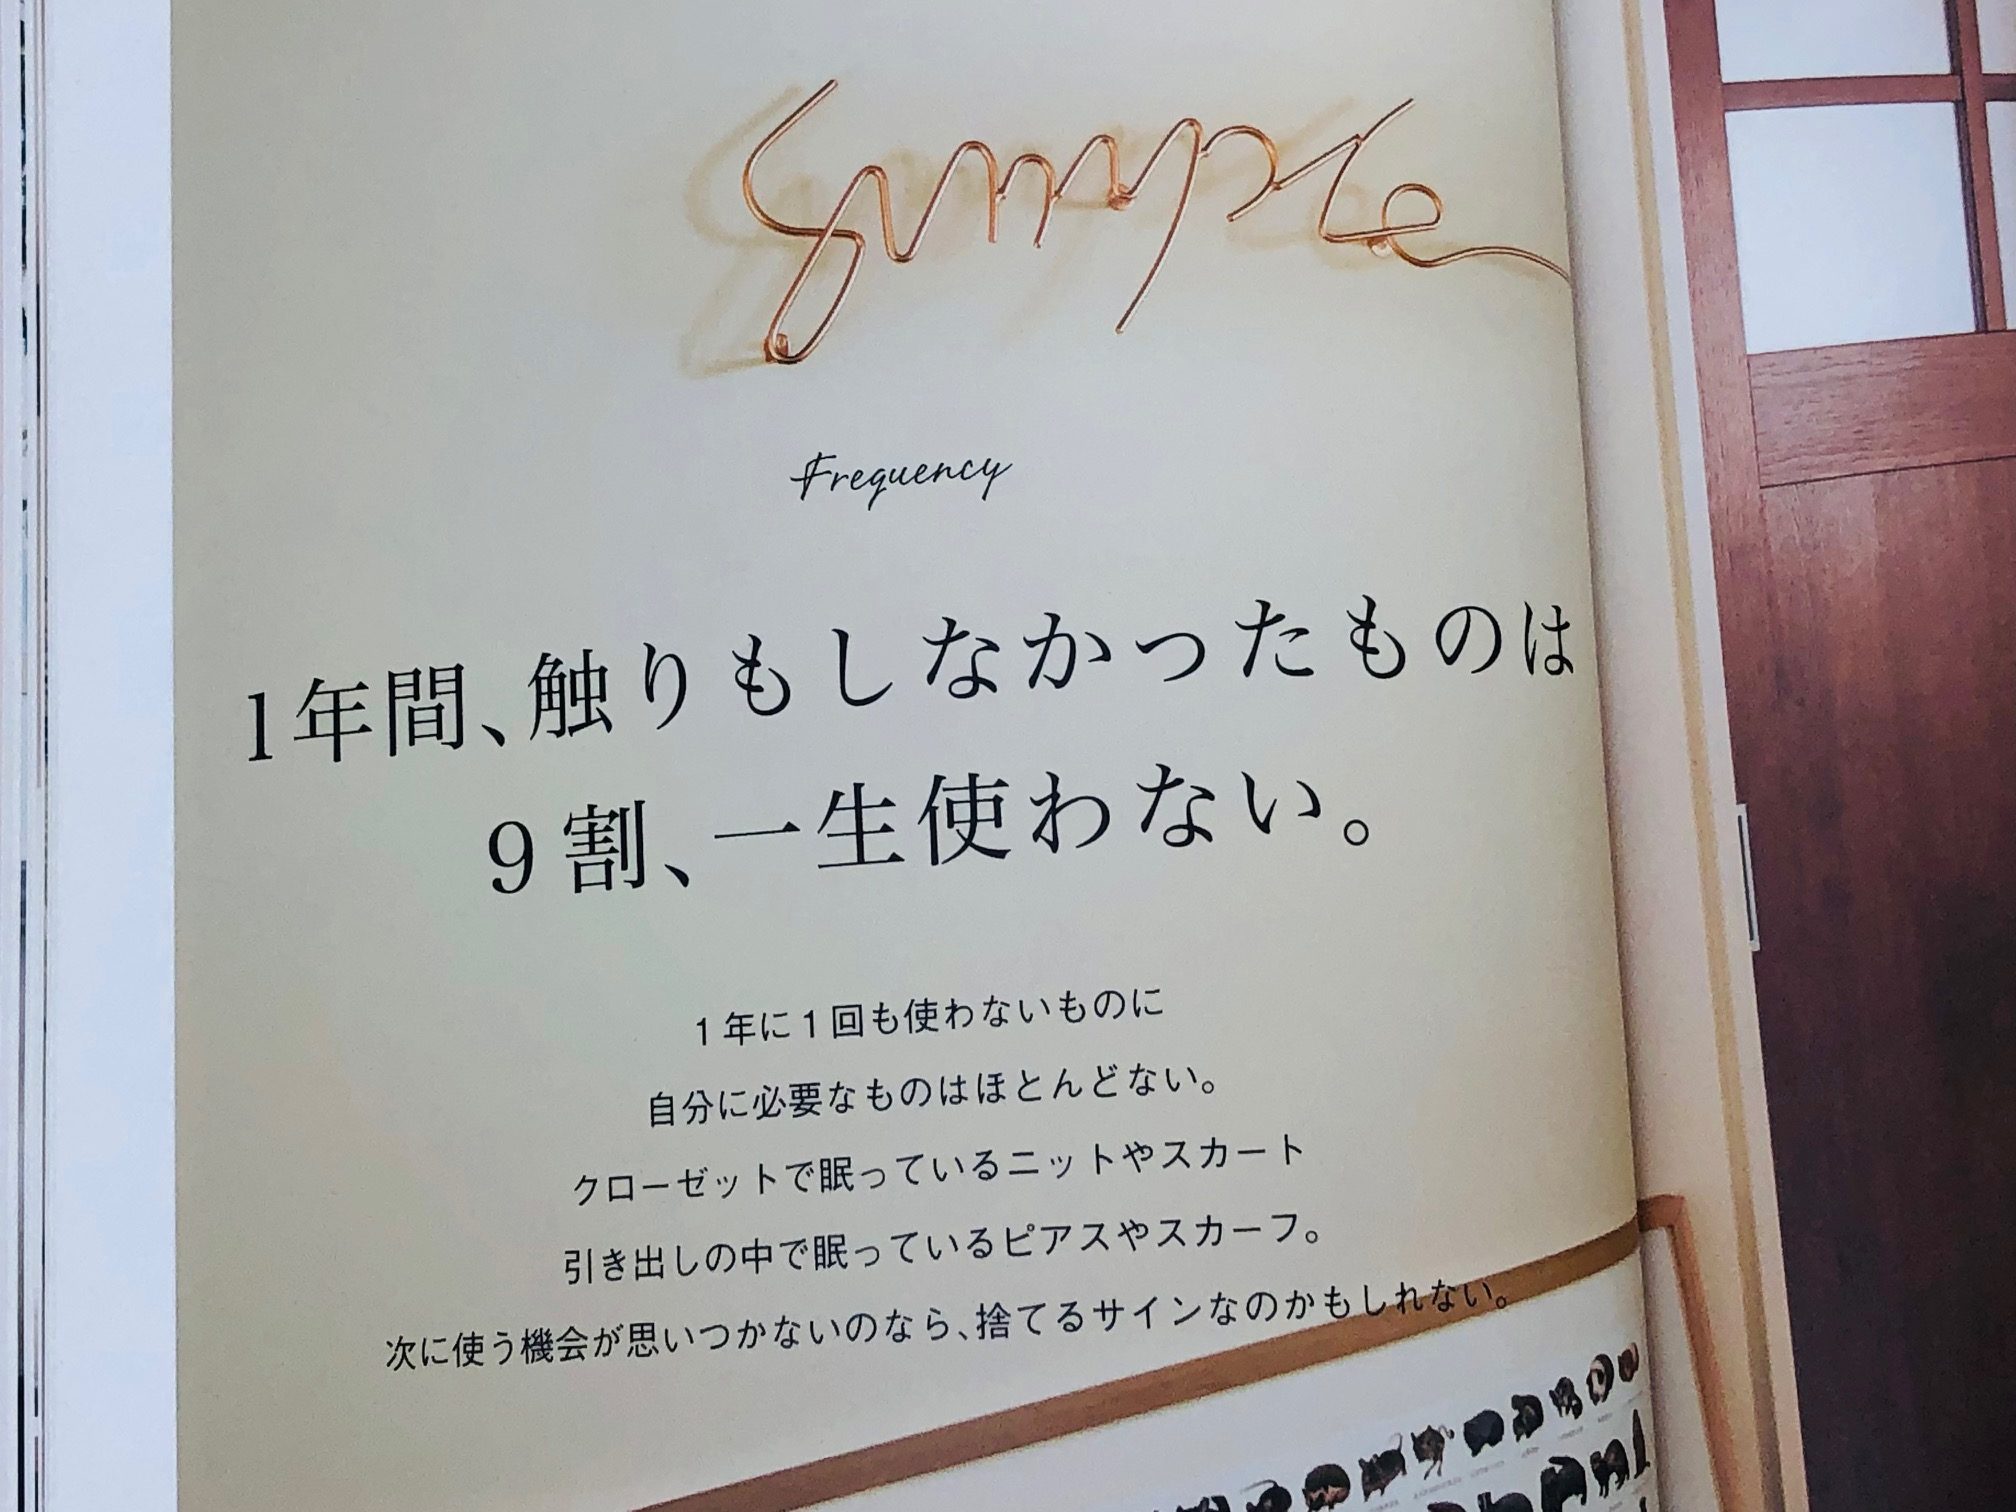 Simple
Frequency
1年間、触りもしなかったものは
9割、一生使わない。
1年に1回も使わないものに
自分に必要なものはほとんどない。
クローゼットで眠っているニットやスカート
引き出しの中で眠っているピアスやスカーフ。
次に使う機会が思いつかないのなら、捨てるサインなのかもしれない。